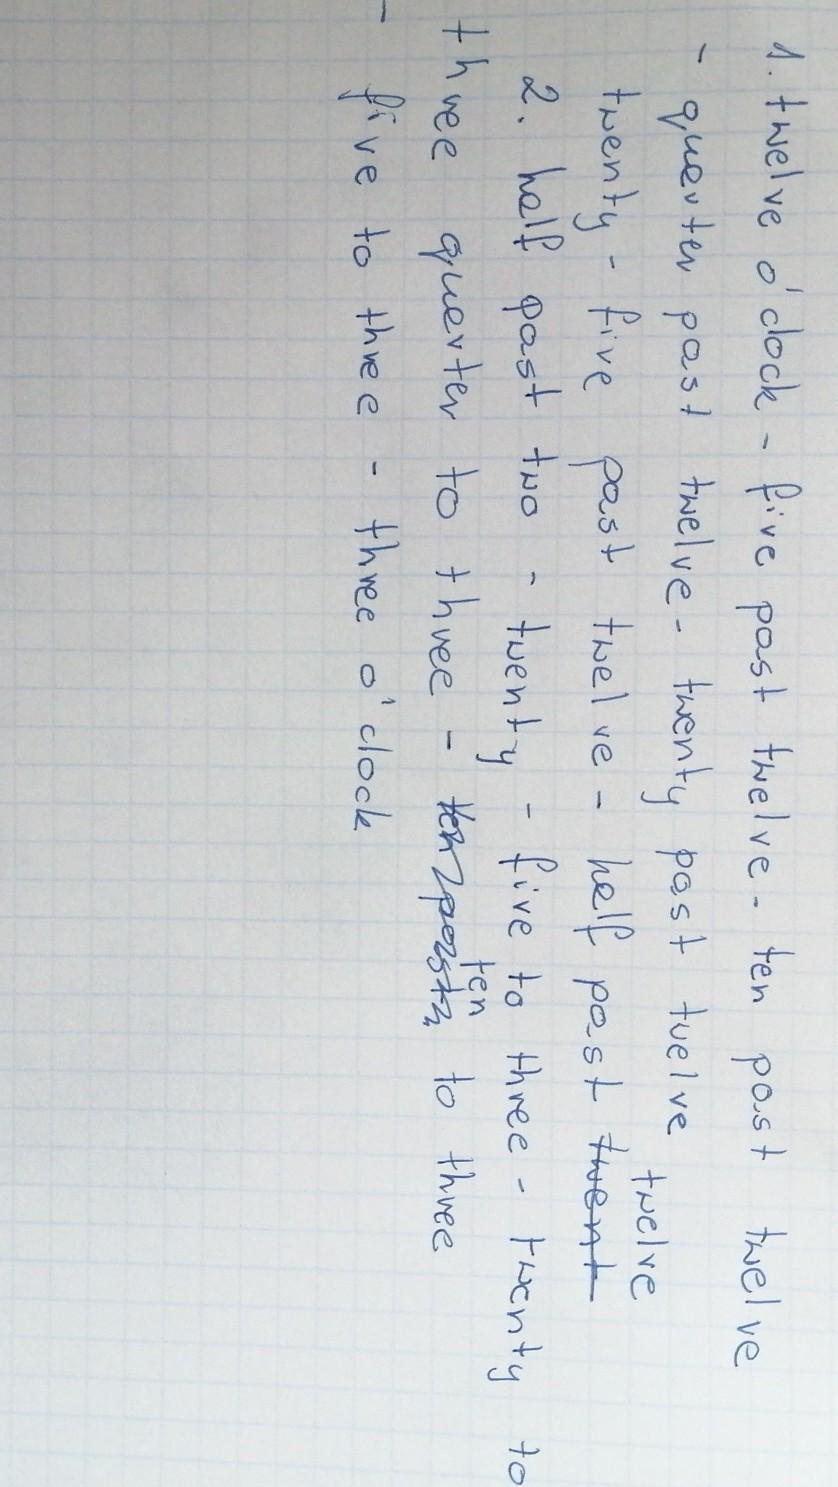 1. twelve o'clock - five past twelve - ten past twelve
- querter past twelve - twenty past twelve
twenty - five past twelve - helf past twent twelve
2. helf past two - twenty - five to three - twenty to
three querter to three - ten past ten to three
- five to three - three o'clock